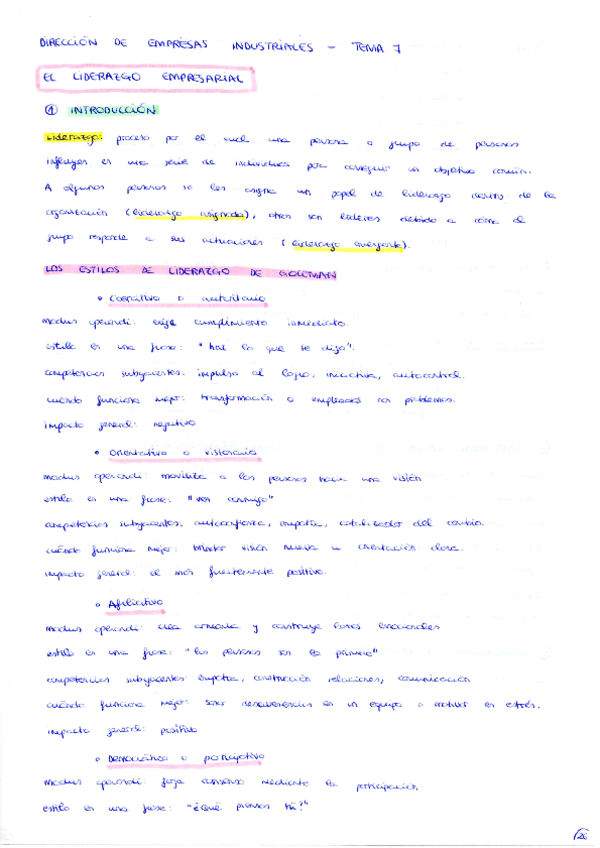 DIRECCIÓN DE EMPRESAS INDUSTRIALES - TEMA 7
EL LIDERAZGO EMPRESARIAL
① INTRODUCCIÓN
Liderazgo: proceso por el cual una persona o grupo de personas
influyen en una serie de individuos para conseguir un objetivo común.
A algunas personas se les asigna un papel de liderazgo dentro de la
organización (liderazgo asignado), otros son líderes debido a cómo el
grupo responde a sus actuaciones (liderazgo emergente).
LOS ESTILOS DE LIDERAZGO DE GOLEMAN
• Coercitivo o autoritario
modus operandi: exige cumplimiento inmediato.
estilo en una frase: "haz lo que te digo".
competencias subyacentes: impulso al logro, iniciativa, autocontrol.
cuándo funciona mejor: transformación o empleados con problemas.
impacto general: negativo
• Orientativo o visionario
modus operandi: moviliza a las personas hacia una visión
estilo en una frase: "ven conmigo"
competencias subyacentes: autoconfianza, empatía, catalizador del cambio.
cuándo funciona mejor: visión nueva u orientación clara.
impacto general: el más fuertemente positivo.
• Afiliativo
modus operandi: crea armonía y construye lazos emocionales
estilo en una frase: "las personas son lo primero"
competencias subyacentes: empatía, construcción relaciones, comunicación
cuándo funciona mejor: sanar desavenencias en un equipo o motivar en estrés.
impacto general: positivo
• Democrático o participativo
modus operandi: forja consenso mediante la participación
estilo en una frase: "¿Qué piensas tú?"
26